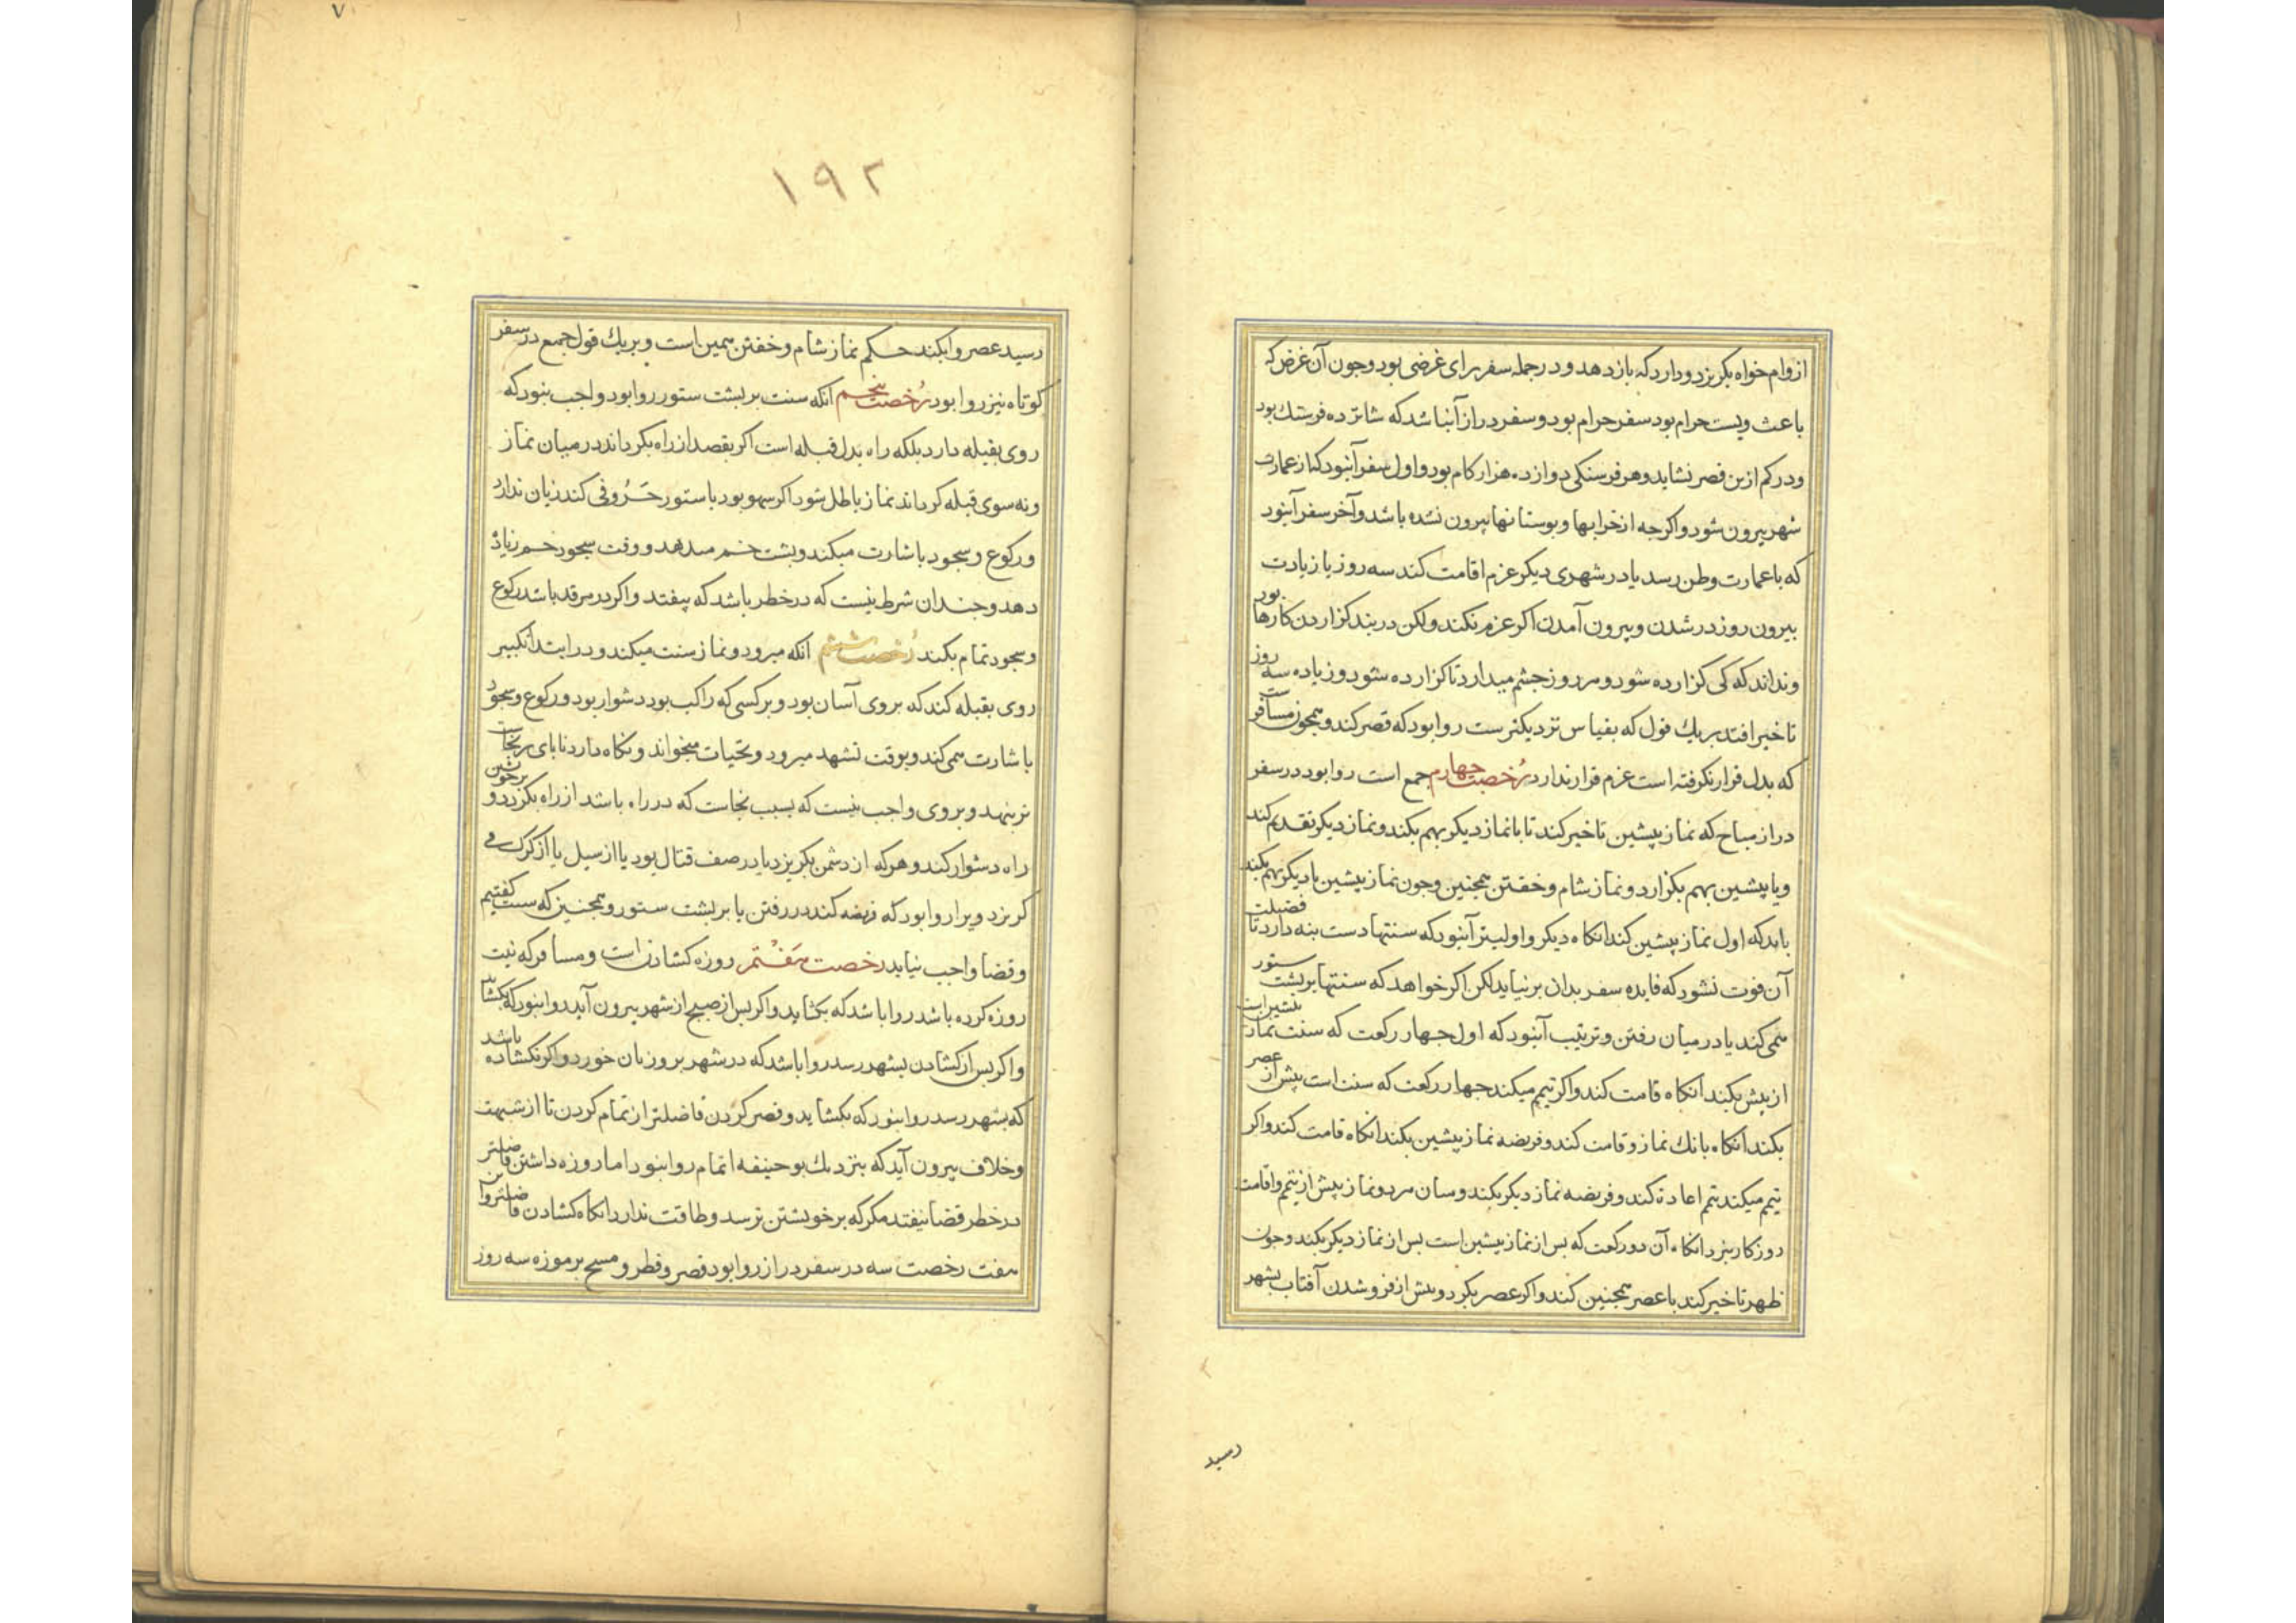 از وام خواه بکریزد و دارد که باز دهد و در جمله سفر برای غرضی بود وجون آن غرض که
باعث ویست حرام بود سفر حرام بود و سفر دراز آنباشد که شانزده فرسنك بود
ودر کم ازین قصر نشاید وهر فرسنکی دوازده هزار کام بود و اول سفر آنبود که از عمارت
شهر بیرون شود و اکر جه از خرابها و بوستانها بیرون نشده باشد وآخر سفر آنبود
که با عمارت وطن رسد یا در شهری دیکر عزم اقامت کند سه روز یا زیادت
بیرون روز در شدن و بیرون آمدن اکر عزم نکند ولکن در بند کزاردن کارها بود
ونداند که کی کزارده شود و هر روز جشم میدارد تا کزارده شود و زیاده سه روز
تاخیر افتد بریك قول که بقیاس نزدیکترست روا بود که قصر کند و همجون مسافرست
که بدل قرار نکرفته است عزم قرار ندارد رخصت جهارم جمع است روا بود در سفر
دراز مباح که نماز پیشین تاخیر کند تا با نماز دیکر بهم بکند و نماز دیکر تقدیم کند
وبا پیشین بهم بکزارد و نماز شام و خفتن همجنین وجون نماز پیشین با دیکر بهم بکند
باید که اول نماز پیشین کند انکاه دیکر و اولیتر آنبود که سنتها دست بنه دارد تا فضیلت
آن فوت نشود که فایده سفر بدان بر نیاید لکن اکر خواهد که سنتها بر بشت ستور
می کند یا در میان رفتن و ترتیب آنبود که اول جهار رکعت که سنت نماز بیشین است
از پیش بکند انکاه قامت کند و اکر تیمم میکند جهار رکعت که سنت است پیش از عصر
بکند انکاه بانك نماز وقامت کند و فریضه نماز پیشین بکند انکاه قامت کند و اکر
تیمم میکند تیمم اعاده کند و فریضه نماز دیکر بکند و میان هر دو نماز بیش از تیمم و اقامت
روزکار نبرد انکاه آن دو رکعت که بس از نماز پیشین است بس از نماز دیکر بکند وجون
ظهر تاخیر کند با عصر همجنین کند و اکر عصر بکرد و پیش از فرو شدن آفتاب بشهر
رسید
۱۹۲
۷
رسید عصر وا بکند حکم نماز شام و خفتن همین است و بریك قول جمع در سفر
کوتاه نیز روا بود رخصت پنجم انکه سنت بر بشت ستور روا بود و واجب نبود که
روی بقبله دارد بلکه راه بدل قبله است اکر بقصد از راه بکرداند در میان نماز
ونه سوی قبله کرداند نماز باطل شود اکر بسهو بود یا ستور حرونی کند زیان ندارد
ورکوع و سجود باشارت میکند و بشت خم میدهد و وقت سجود خم زیاد
دهد و جندان شرط نیست که در خطر باشد که بیفتد و اکر در مرقد باشد رکوع
و سجود تمام بکند رخصت ششم انکه میرود و نماز سنت میکند و در ابتدا تکبیر
روی بقبله کند که بروی آسان بود و بر کسی که راکب بود دشوار بود و رکوع و سجود
باشارت همی کند و بوقت تشهد میرود و تحیات میخواند و نکاه دارد تا بای بر نجاست
تر ننهد و بروی واجب نیست که بسبب نجاست که در راه باشد از راه بکردد و بر خویشتن
راه دشوار کند و هر که از دشمن بکریزد یا در صف قتال بود یا از سیل یا از کرک می
کریزد ویرا روا بود که فریضه کند در رفتن یا بر بشت ستور و همجنین که سنت کفتیم
وقضا واجب نیاید رخصت هفتم روزه کشادن است ومسافر که نیت
روزه کرده باشد روا باشد که بکشاید و اکر بس از صبح از شهر بیرون آید روا نبود که بکشاید
واکر بس از کشادن بشهر رسد روا باشد که در شهر بروز نان خورد و اکر نکشاده باشد
که بشهر رسد روا نبود که بکشاید و قصر کردن فاضلتر از تمام کردن تا از شبهت
وخلاف بیرون آید که بنزدیك بوحنیفه اتمام روا نبود اما روزه داشتن فاضلتر
در خطر قضا نیفتد مکر که بر خویشتن ترسد و طاقت ندارد انکاه کشادن فاضلتر وازین
هفت رخصت سه در سفر دراز روا بود قصر و فطر و مسح بر موزه سه روز